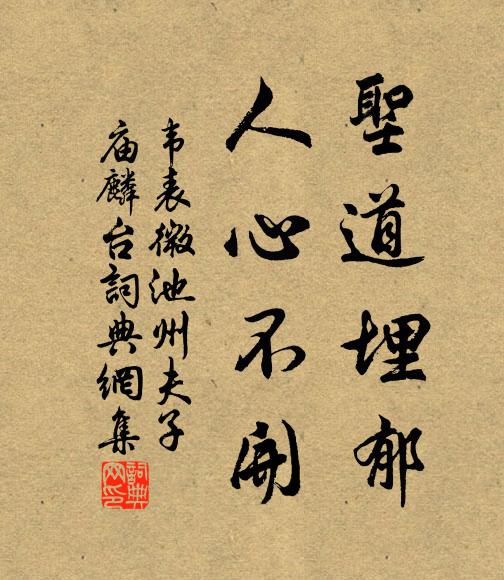 聖道埋郁
人心不開
韦表微池州夫子
庙麟台詞典網集
詞典
网印